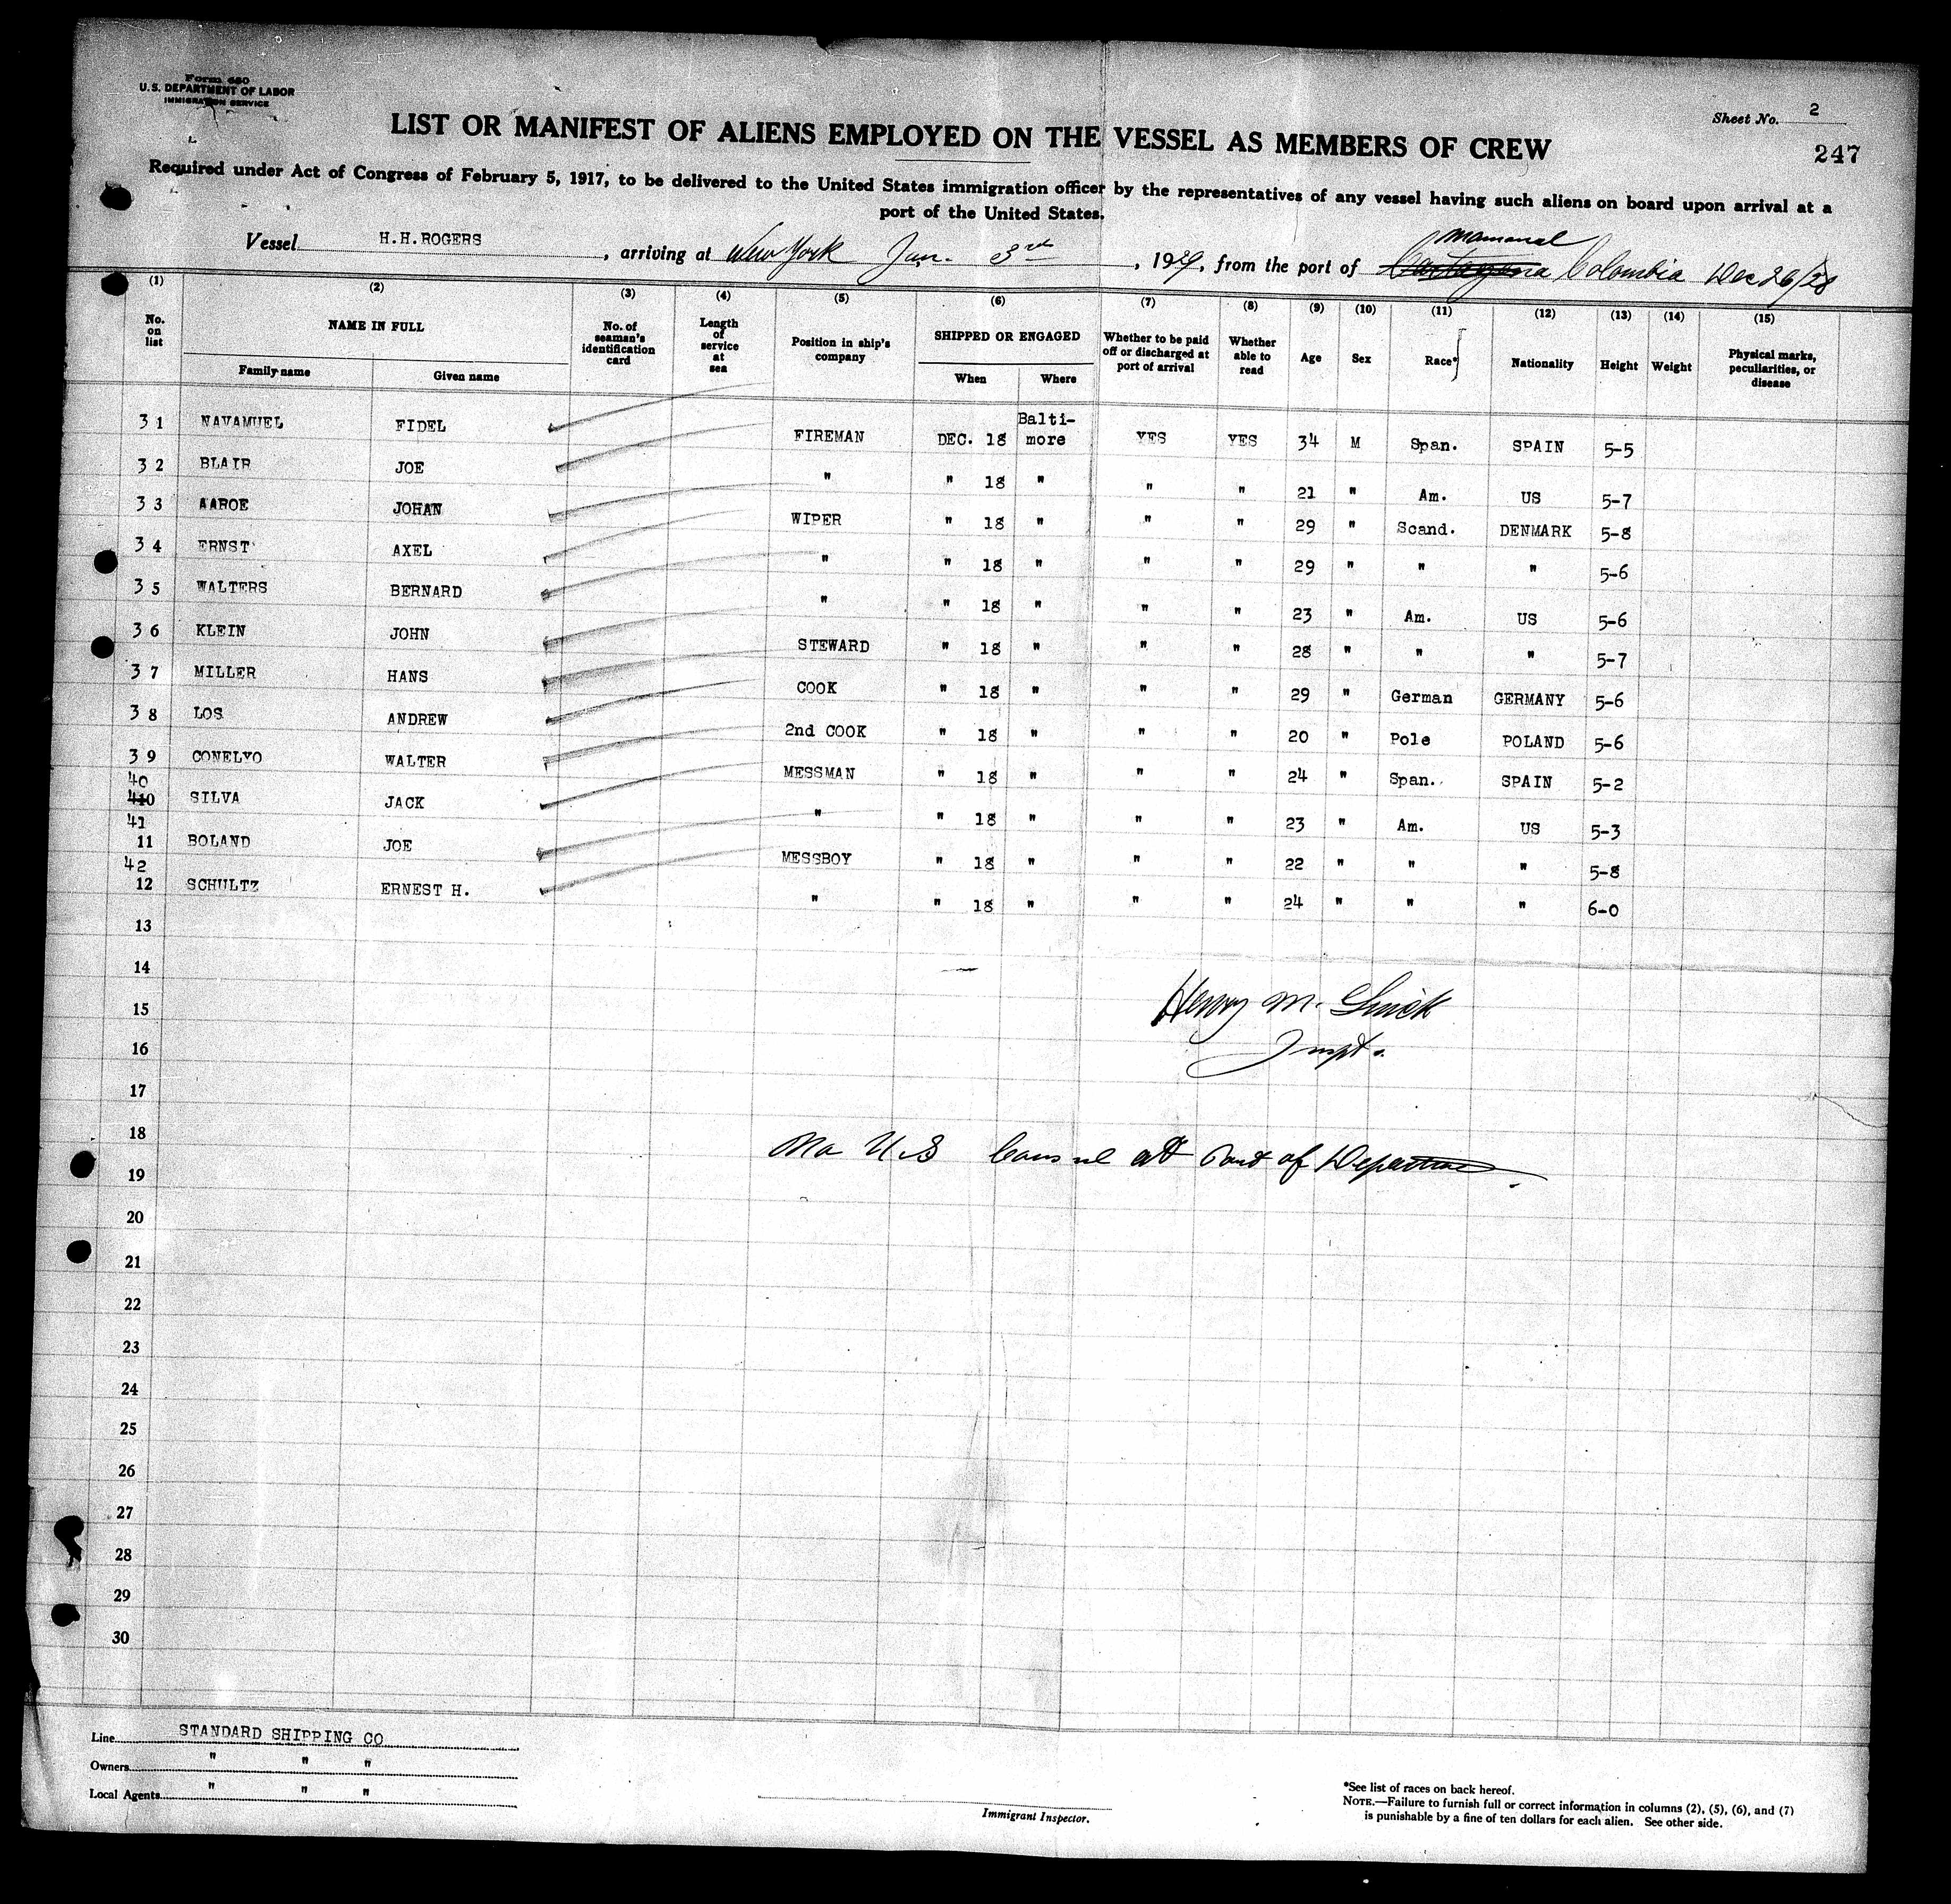 Form 680
U.S. DEPARTMENT OF LABOR
IMMIGRATION SERVICE
Sheet No. 2
247
LIST OR MANIFEST OF ALIENS EMPLOYED ON THE VESSEL AS MEMBERS OF CREW
Required under Act of Congress of February 5, 1917, to be delivered to the United States immigration officer by the representatives of any vessel having such aliens on board upon arrival at a
port of the United States.
Mamonal
Vessel H.H.ROGERS, arriving at New York Jan. 3rd, 1929, from the port of Cartagena Colombia Dec 26/28
(1) (2) (3) (4) (5) (6) (7) (8) (9) (10) (11) (12) (13) (14) (15)
No. on list NAME IN FULL Family name Given name No. of seaman's identification card Length of service at sea Position in ship's company SHIPPED OR ENGAGED When Where Whether to be paid off or discharged at port of arrival Whether able to read Age Sex Race* Nationality Height Weight Physical marks, peculiarities, or disease
31 NAVAMUEL FIDEL FIREMAN DEC. 18 Balti-more YES YES 34 M Span. SPAIN 5-5
32 BLAIR JOE " " 18 " " " 21 " Am. US 5-7
33 AAROE JOHAN WIPER " 18 " " " 29 " Scand. DENMARK 5-8
34 ERNST AXEL " " 18 " " " 29 " " " 5-6
35 WALTERS BERNARD " " 18 " " " 23 " Am. US 5-6
36 KLEIN JOHN STEWARD " 18 " " " 28 " " " 5-7
37 MILLER HANS COOK " 18 " " " 29 " German GERMANY 5-6
38 LOS ANDREW 2nd COOK " 18 " " " 20 " Pole POLAND 5-6
39 CONELVO WALTER MESSMAN " 18 " " " 24 " Span. SPAIN 5-2
40 410 SILVA JACK " " 18 " " " 23 " Am. US 5-3
41 11 BOLAND JOE MESSBOY " 18 " " " 22 " " " 5-8
42 12 SCHULTZ ERNEST H. " " 18 " " " 24 " " " 6-0
13
14
15 Henry M.
16 Inspt.
17
18 No U.S Consul at Port of Departure.
19
20
21
22
23
24
25
26
27
28
29
30
Line STANDARD SHIPPING CO
Owners " " "
Local Agents " " "
Immigrant Inspector.
*See list of races on back hereof.
NOTE.—Failure to furnish full or correct information in columns (2), (5), (6), and (7)
is punishable by a fine of ten dollars for each alien. See other side.